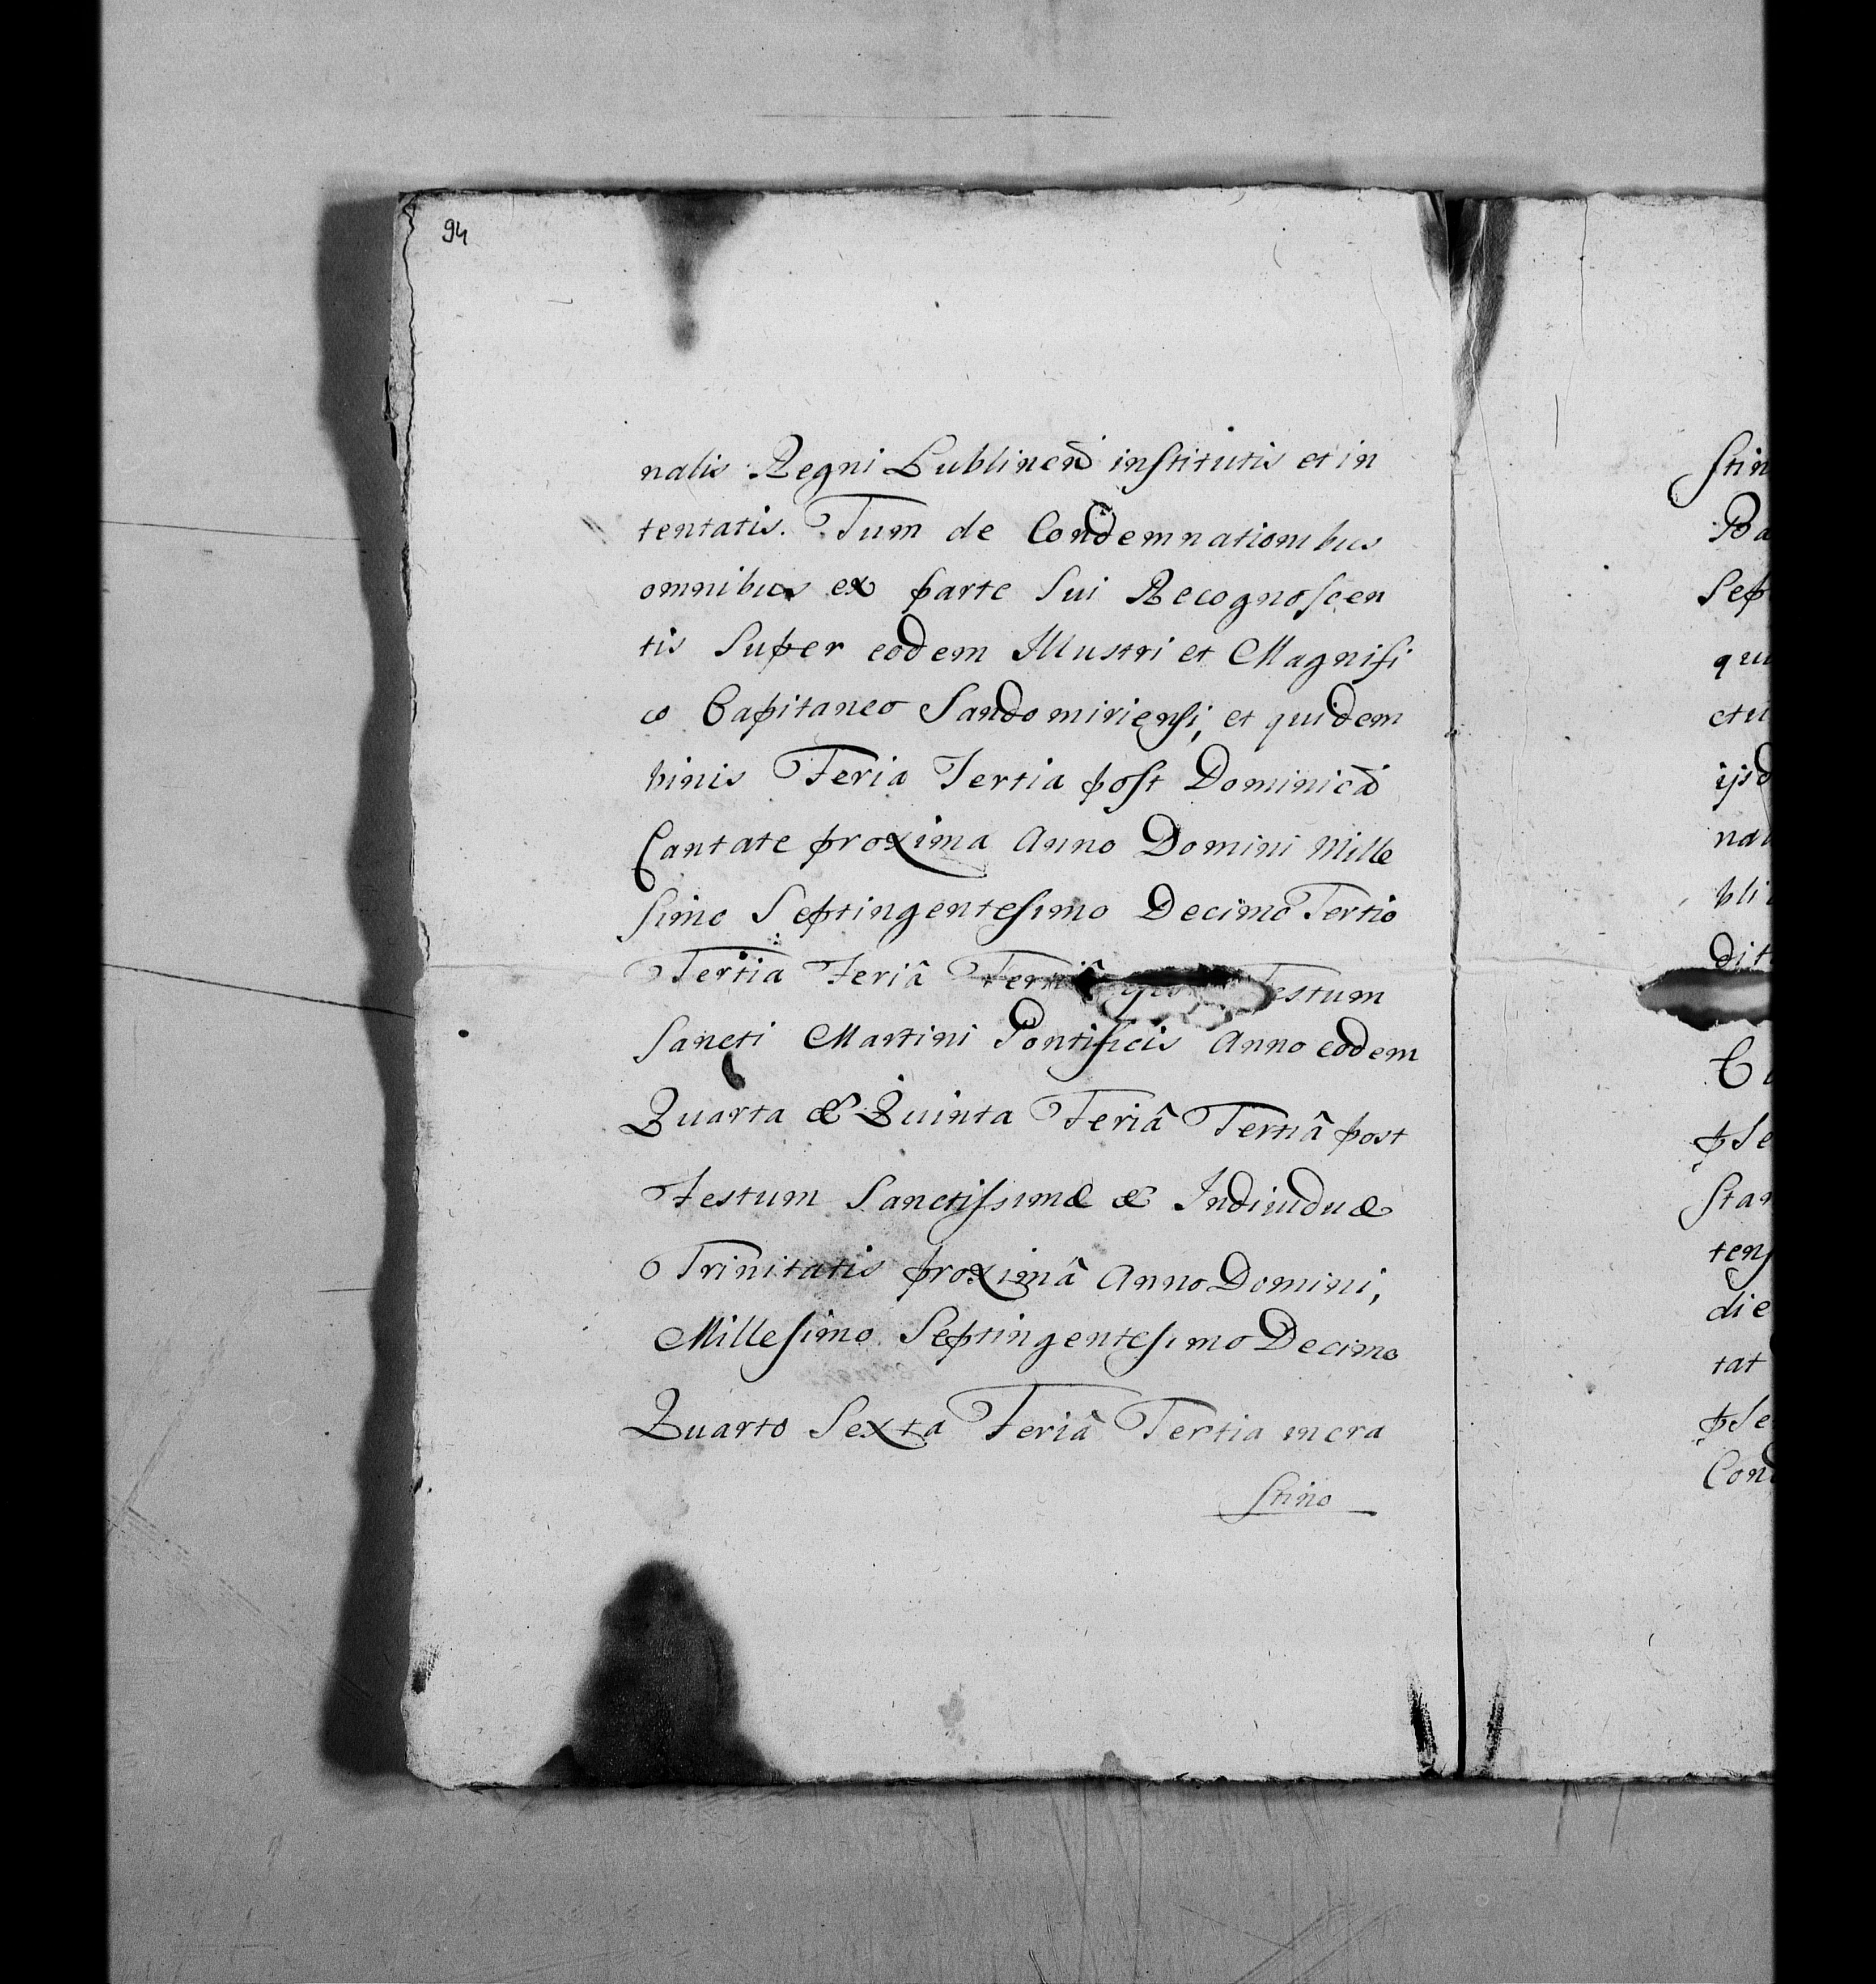 94
nalis Regni Lublinen̄ institutis et in
tentatis. Tum de Condemnationibus
omnibus ex parte sui Recognoscen
tis super eodem Illustri et Magnifi
co Capitaneo Sandomiriensi, et quidem
binis Feria Tertia post Dominicā
Cantate proxima Anno Domini Mille
simo Septingentesimo Decimo Tertio
Tertia Feriâ Tertiâ Festum
Sancti Martini Pontificis Anno eodem
Quarta & Quinta Feriâ Tertiâ post
Festum Sanctissimæ & Individuæ
Trinitatis proximâ Anno Domini,
Millesimo Septingentesimo Decimo
Quarto Sexta Feriâ Tertia in cra
stino
stin
Ba
Sep
qui
ctu
ijsd
nal
bli
dit
C
pse
stan
ten
die
tat
pse
Cond